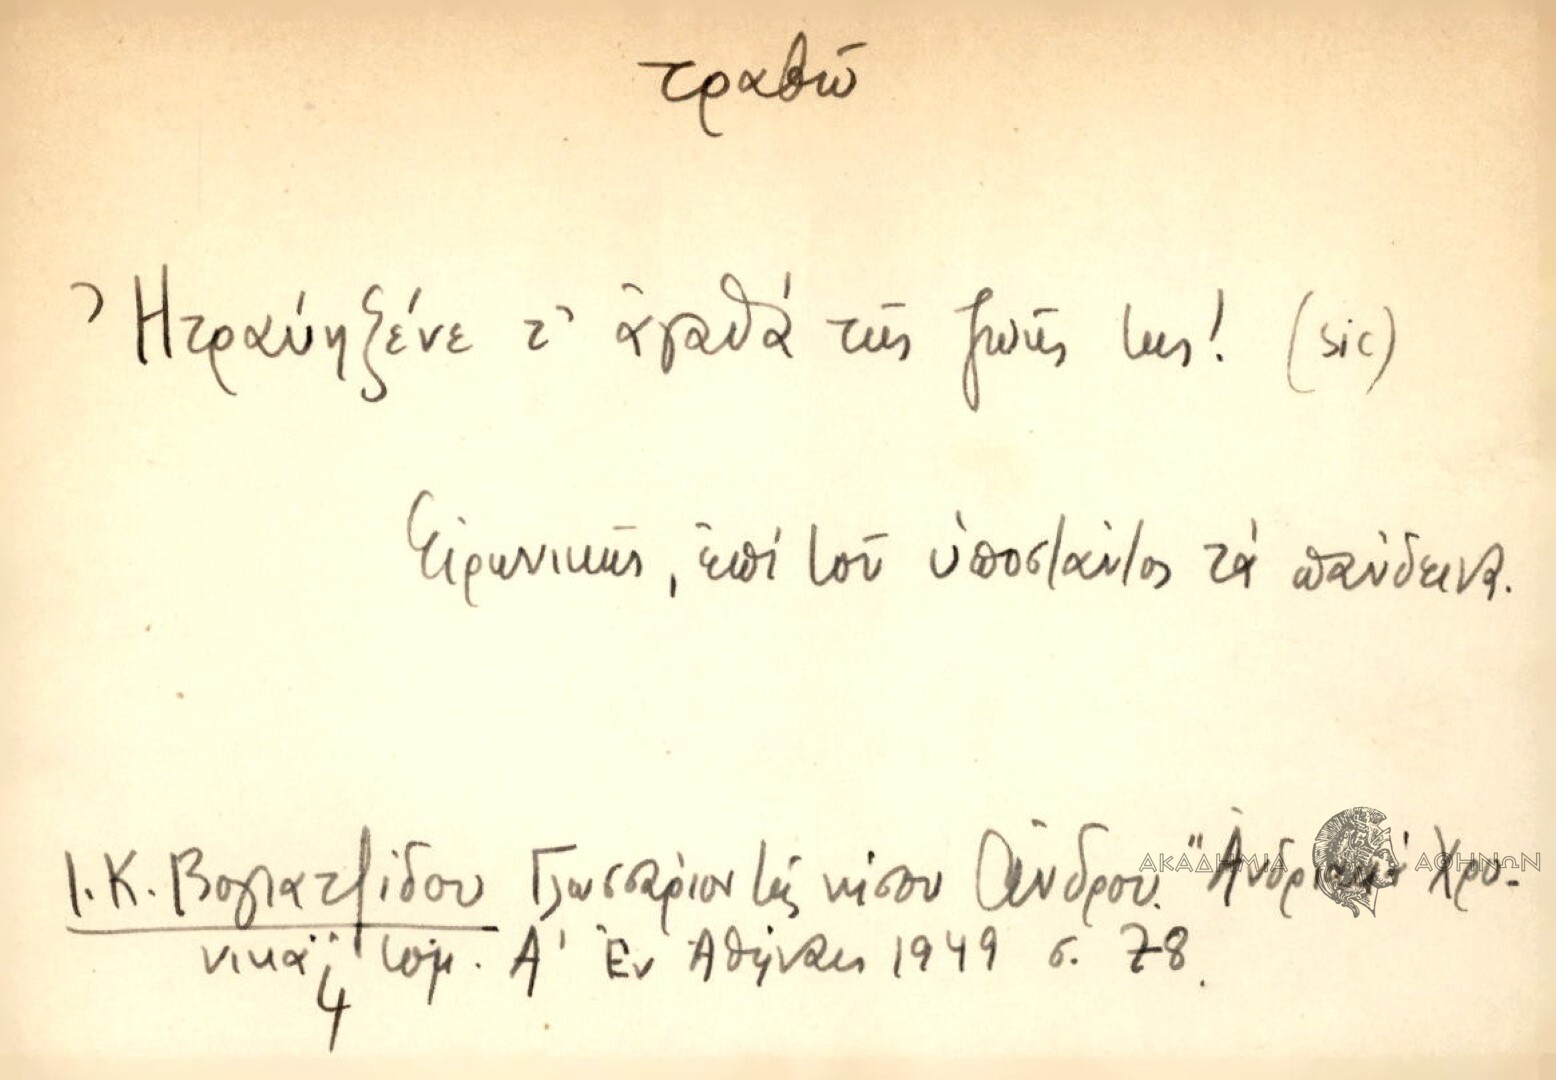 τραβῶ
Ἠτραύηξένε τ' ἀγαθὰ τῆς ζωῆς της! (sic)
Εἰρωνικῶς, ἐπὶ τοῦ ὑποστάντος τὰ πάνδεινα.
Ι. Κ. Βογιατζίδου Γλωσσάριον τῆς νήσου Ἄνδρου. "Ἀνδριακὰ Χρο-
νικά", τόμ. Α' Ἐν Ἀθήναις 1949 σ. 78.
4
ΑΚΑΔΗΜΙΑ ΑΘΗΝΩΝ